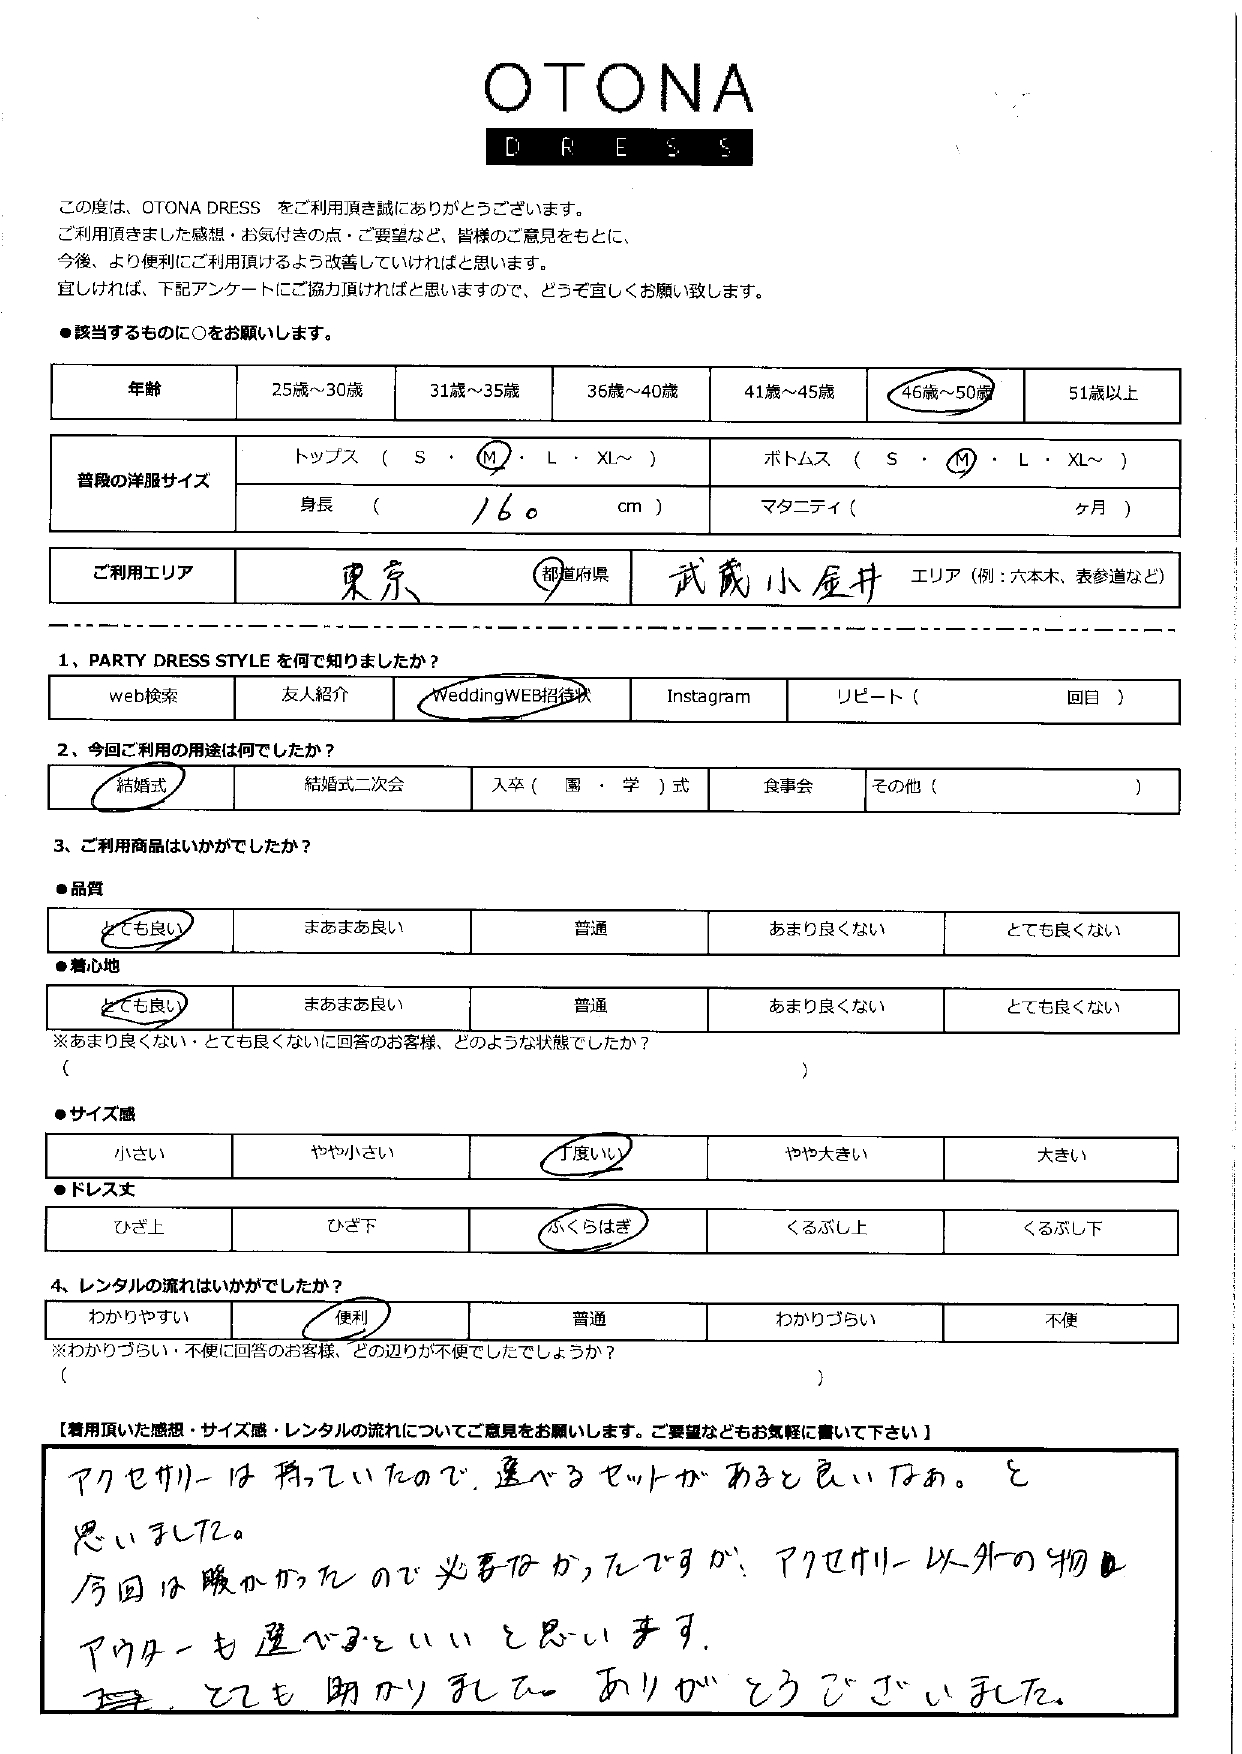 OTONA
DRESS
この度は、OTONA DRESS をご利用頂き誠にありがとうございます。
ご利用頂きました感想・お気付きの点・ご要望など、皆様のご意見をもとに、
今後、より便利にご利用頂けるよう改善していければと思います。
宜しければ、下記アンケートにご協力頂ければと思いますので、どうぞ宜しくお願い致します。
●該当するものに○をお願いします。
年齢 25歳～30歳 31歳～35歳 36歳～40歳 41歳～45歳 46歳～50歳 51歳以上
普段の洋服サイズ トップス ( S ・ M ・ L ・ XL～ ) ボトムス ( S ・ M ・ L ・ XL～ )
身長 ( 160 cm ) マタニティ ( ヶ月 )
ご利用エリア 東京 都道府県 武蔵小金井 エリア（例：六本木、表参道など）
1、PARTY DRESS STYLE を何で知りましたか？
web検索 友人紹介 WeddingWEB招待状 Instagram リピート ( 回目 )
2、今回ご利用の用途は何でしたか？
結婚式 結婚式二次会 入卒 ( 園 ・ 学 ) 式 食事会 その他 ( )
3、ご利用商品はいかがでしたか？
●品質
とても良い まあまあ良い 普通 あまり良くない とても良くない
●着心地
とても良い まあまあ良い 普通 あまり良くない とても良くない
※あまり良くない・とても良くないに回答のお客様、どのような状態でしたか？
( )
●サイズ感
小さい やや小さい 丁度いい やや大きい 大きい
●ドレス丈
ひざ上 ひざ下 ふくらはぎ くるぶし上 くるぶし下
4、レンタルの流れはいかがでしたか？
わかりやすい 便利 普通 わかりづらい 不便
※わかりづらい・不便に回答のお客様、どの辺りが不便でしたでしょうか？
( )
【着用頂いた感想・サイズ感・レンタルの流れについてご意見をお願いします。ご要望などもお気軽に書いて下さい】
アクセサリーは持っていたので、選べるセットがあると良いなぁ。と
思いました。
今回は暖かかったので必要なかったですが、アクセサリー以外の物
アウターも選べるといいと思います。
とても助かりました。ありがとうございました。